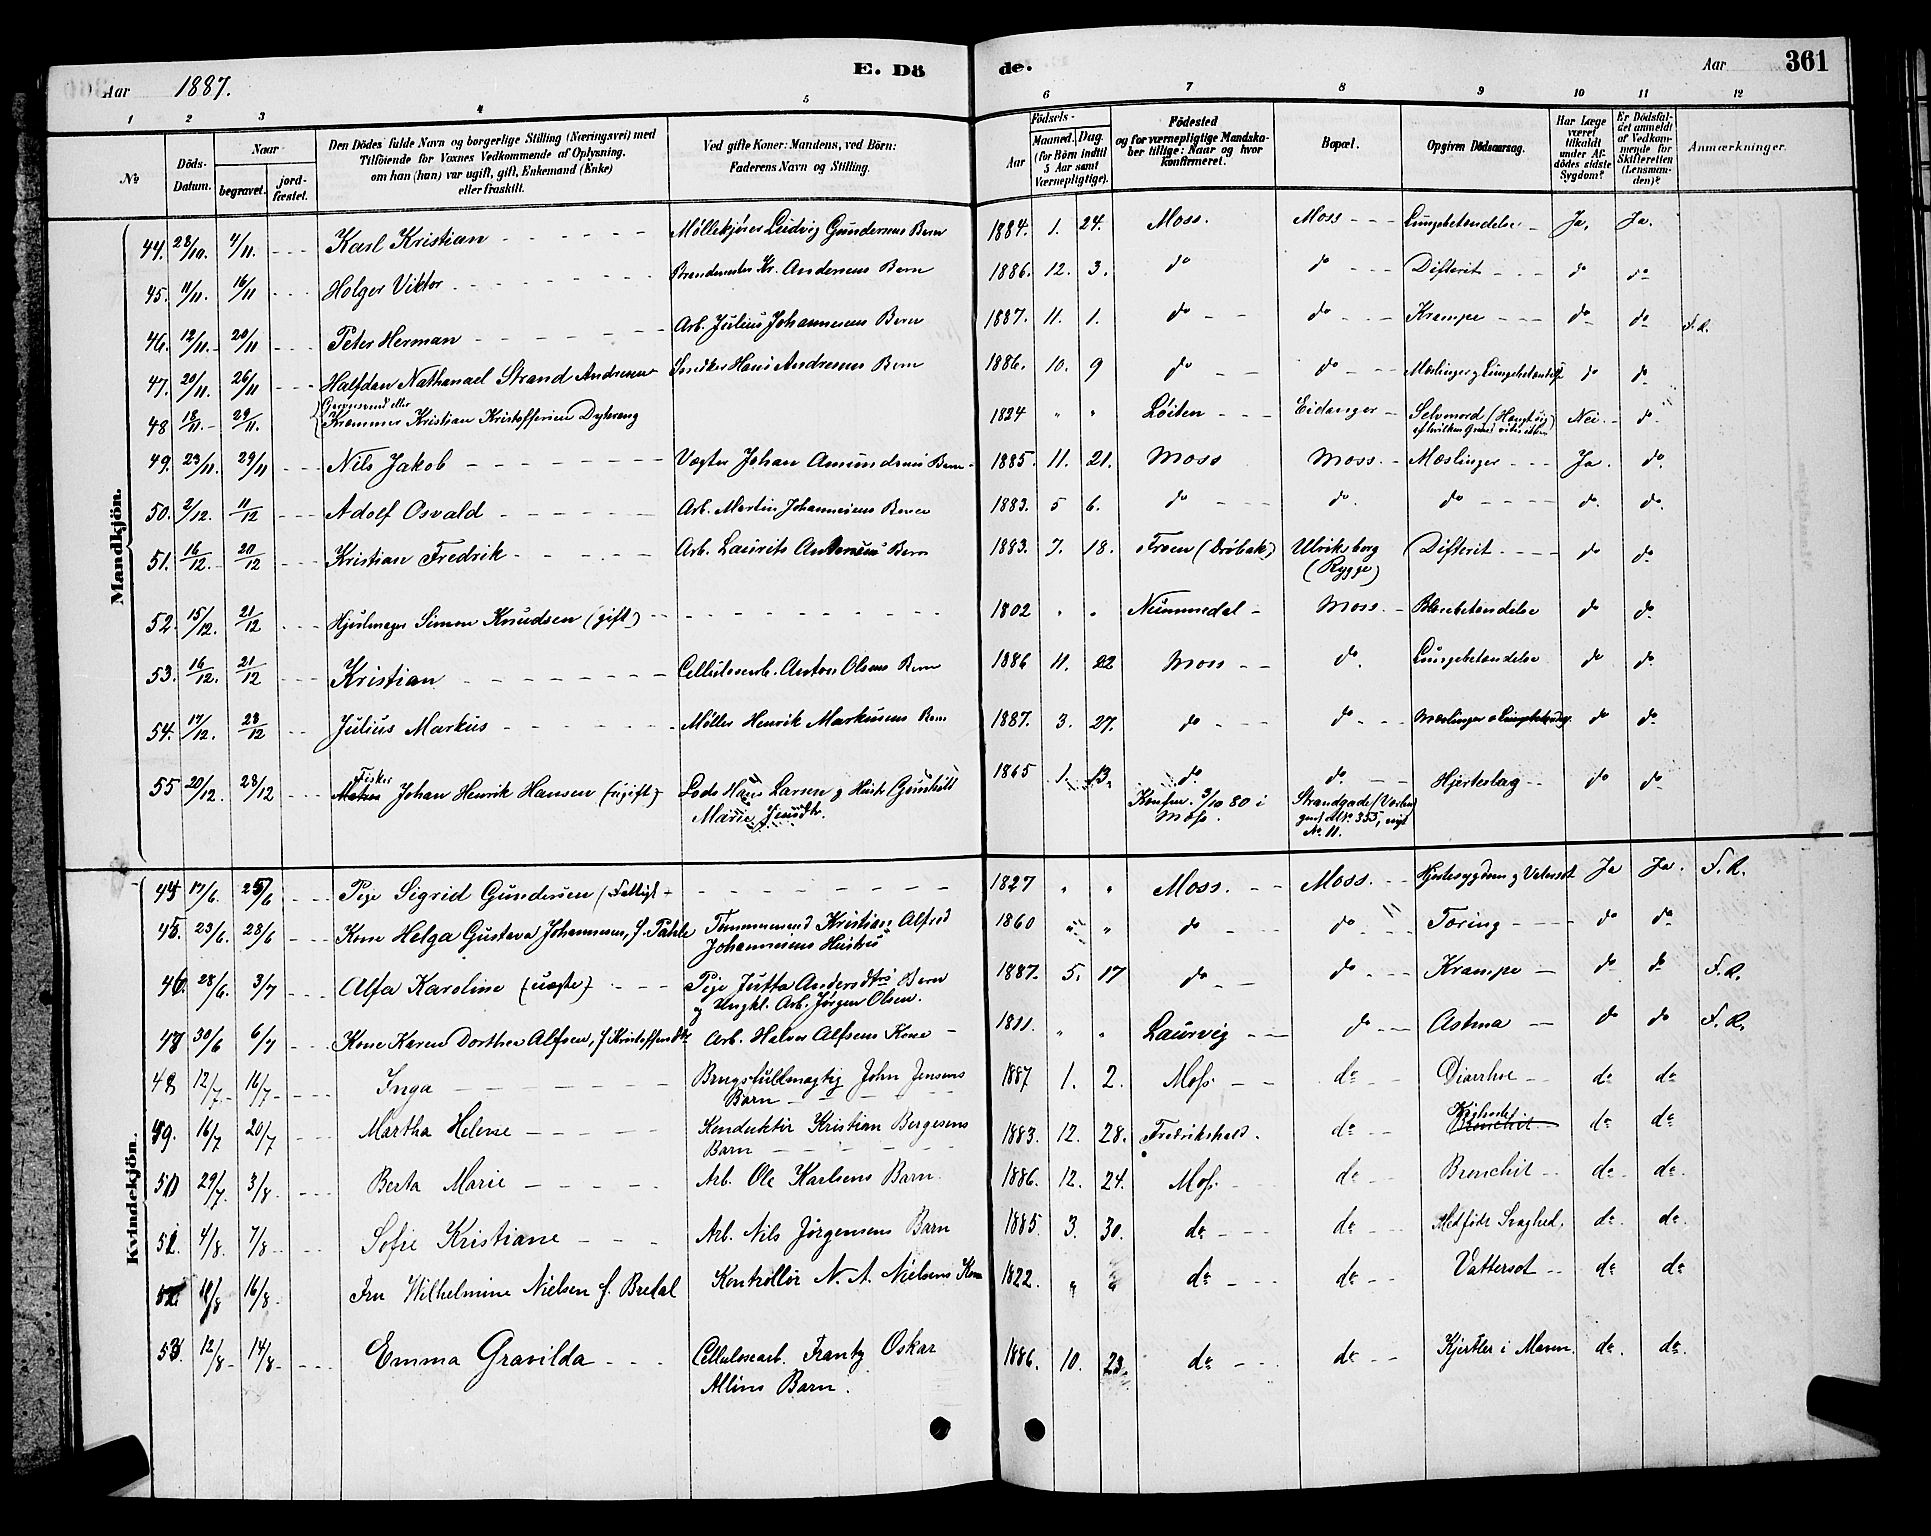 Aar 1887. E. Dö de. Aar 361
1 2 3 4 5 6 7 8 9 10 11 12
No Döds-Datum. Naar begravet. jord-fæstet. Den Dödes fulde Navn og borgerlige Stilling (Næringsvei) med Tilföiende for Voxnes Vedkommende af Oplysning, om han (hun) var ugift, gift, Enkemand (Enke) eller fraskilt. Ved gifte Koner: Mandens, ved Börn: Faderens Navn og Stilling. Födsels- Aar Maaned. Dag. (for Börn indtil 5 Aar samt Værnepligtige). Födested og for værnepligtige Mandska-ber tillige: Naar og hvor konfirmeret. Bopæl. Opgiven Dödsaarsag. Har Læge været tilkaldt under Af-dödes sidste Sygdom? Er Dödsfal-det anmeldt af Vedkom-mende for Skifteretten (Lensman-den)? Anmærkninger.
Mandkjön.
44. 28/10. 4/11. Karl Kristian Møllekjører Ludvig Gundersens Barn 1884. 1. 24. Moss. Moss Lungebetændelse Ja. Ja.
45. 11/11. 16/11 Holger Viktor Brandmester Kr. Andersens Barn 1886. 12. 3. do do Difterit do do
46. 12/11. 20/11 Peter Herman Arb. Julius Johannesens Barn 1887. 11. 1. do do Krampe do do F. R.
47. 20/11. 26/11 Halfdan Nathanael Strand Andresen Snedker Hans Andresens Barn 1886. 10. 9 do do Mæslinger og Lungebetændelse do do
48 18/11. 29/11. Kræmmer Kristian Kristoffersen Dytereng 1824 " " Löiten Eidanger Selvmord Nei do
49. 23/11. 29/11 Nils Jakob Vægter Johan Amundsens Barn 1885. 11. 21. Moss Moss. Mæslinger Ja. do.
50. 2/12. 11/12 Adolf Osvald Arb. Martin Johannesens Barn 1883. 5 6. do do. do do. do.
51. 16/12. 20/12 Kristian Fredrik Arb. Laurits Andersens Barn 1883. 7. 18. Froen (Drøbak) Ulriksborg (Rygge) Difterit do do
52. 15/12. 21/12 Hjulmager Simon Knudsen (gift) 1802 " " Nummedal Moss. Blærebetændelse do do
53. 16/12. 21/12 Kristian Cellulosearb. Anton Olsens Barn 1886 11. 22 Moss do. Lungebetændelse do do
54. 17/12. 28/12 Julius Markus Møller Henrik Markusens Barn 1887. 3. 27. do do Mæslinger o Lungebetændelse do do
55 20/12. 28/12 Fisker Johan Henrik Hansen (ugift) Lods Hans Larsen og Hustr Gunhild 1865 1. 13. do. do. Hjerteslag do do
Marie Jensdtr. Konfirm. 3/10 80 i Moss. Strandgade No. 11.
Kvindekjön.
44 17/6. 25/6 Pige Sigrid Gundersen (Fattigl 1827 " " Moss. Moss. Hjertesygdom og Vatersot Ja Ja. F. R.
45. 23/6. 28/6 Kone Helga Gustava Johannesen, f. Pahle Tømmermand Kristian Alfred Johannesens Hustru 1860 " " do do Tæring do do
46. 28/6. 3/7 Alfa Karoline (uægte) Pige Jutta Andersdtrs Barn og Ungkl. Arb. Jørgen Olsen. 1887. 5. 17 do do Krampe do do F. R.
47 30/6 6/7 Kone Karen Dorthea Alfsen, f Kristoffersdtr Arb. Halvor Alfsens Kone 1811. " " Laurvig do Astma do do F. R.
48 12/7 16/7 Inga Brugsfuldmægtig John Jensens Barn 1887 1. 2. Moss. do Diarrhoe do do
49. 16/7 20/7 Martha Helene Konduktör Kristian Børgesens Barn 1883. 12. 28. Fredrikshald. do Kighoste Bronchit do do
50 29/7. 3/8 Berta Marie Arb. Ole Karlsens Barn. 1886. 12. 24. Moss. do Bronchit do. do.
51. 4/8. 7/8 Sofie Kristiane Arb. Nils Jörgensens Barn 1885. 3. 30. do do Medfödt Svaghed, do. do.
52. 10/8 16/8 Fru Wilhelmine Nielsen f. Bredal Kontrollör N. A. Nielsens Kone 1822. " " do do Vattersot do do
53. 12/8 14/8 Emma Gravilda Cellulosearb. Frantz Oskar 1886. 10. 23 do do Kjertler i Maven. do. do.
Allins Barn.